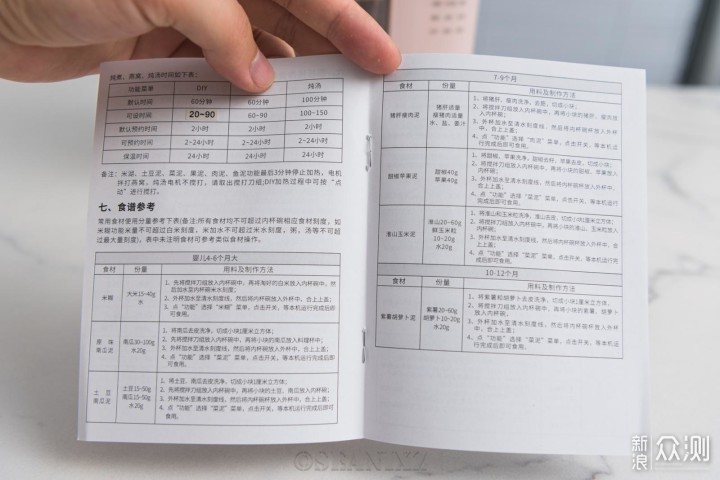 炖煮、燕窝、炖汤时间如下表：
功能菜单 DIY 炖汤
默认时间 60分钟 60分钟 100分钟
可设时间 20~90 60~90 100~150
默认预约时间 2小时 2小时 2小时
可预约时间 2~24小时 2~24小时 2~24小时
保温时间 24小时 24小时 24小时
备注：米湖、土豆泥、菜泥、果泥、肉泥、鱼泥功能最后3分钟停止加热，电机
并打燕窝，炖汤电机不搅打，请取出搅打刀组;DIY加热过程中可按“点
动”进行搅打。
七、食谱参考
常用食材使用分量参考下表(备注:所有食材均不可超过内杯碗相应食材刻度，如
米糊功能米量不可超过白米刻度，米加水不可超过米水刻度，粥、汤等不可超
过最大量刻度)。表中未注明食材可参考类似食材操作。
婴儿4-6个月大
食材 份量 用料及制作方法
米糊
大米15-40g
水
1、先将搅拌刀组放入内杯碗中，再将淘好的白米放入内杯碗中，然
后加水至内碗米水刻度；
2、外杯加水至清水刻度线，然后将内杯碗放入外杯中，合上上盖；
3、点“功能”选择“米糊”菜单，点击开关，等本机运行完成后即
可食用。
南瓜泥
南瓜30-100g
水20g
1、将南瓜去皮洗净，切成小块1厘米立方体；
2、先将搅拌刀组放入内杯碗中，再将小块的南瓜放入料理杯中；
3、外杯加水至清水刻度线，然后将内杯碗放入外杯中，合上上盖；
4、点“功能”选择“菜泥”菜单，点击开关，等本机运行完成后即
可食用。
土豆
南瓜泥
土豆15-50g
南瓜15-50g
水20g
1、将土豆、南瓜去皮洗净，切成小块1厘米立方体；
2、先将搅拌刀组放入内杯碗中，再将小块的土豆、南瓜放入内杯碗；
3、外杯加水至清水刻度线，然后将内杯碗放入外杯中，合上上盖；
4、点“功能”选择“菜泥”菜单，点击开关，等本机运行完成后即
可食用。
7-9个月
食材 份量 用料及制作方法
猪肝瘦肉泥
猪肝适量
瘦猪肉适量
水、盐、葱汁
1、将猪肝、瘦肉洗净，去筋，切成小块；
2、先将搅拌刀组放入内杯碗中，再将小块的猪肝，瘦肉放
入内杯碗；
3、外杯加水至清水刻度线，然后将内杯碗放入外杯中，合
上上盖；
4、点“功能”选择“肉泥”菜单，点击开关，等本机运
行完成后即可食用。
甜椒苹果泥
甜椒40g
苹果40g
1、将甜椒、苹果洗净，甜椒去籽，苹果去皮，切成小块；
2、先将搅拌刀组放入内杯碗中，再将小块的甜椒、苹果放
入内杯碗；
3、外杯加水至清水刻度线，然后将内杯碗放入外杯中，合
上上盖；
4、点“功能”选择“菜泥”菜单，点击开关，等本机运
行完成后即可食用。
淮山玉米泥
淮山20-60g
鲜玉米粒
10~20g
水20g
1、将淮山和玉米粒洗净，淮山去皮，切成小块1厘米立方体；
2、先将搅拌刀组放入内杯碗中，再将小块的淮山，玉米粒放入
内杯碗；
3、外杯加水至清水刻度线，然后将内杯碗放入外杯中，合上上盖；
4、点“功能”选择“菜泥”菜单，点击开关，等本机运行完
成后即可食用。
10-12个月
食材 份量 用料及制作方法
紫薯胡萝卜泥
紫薯20~60g
胡萝卜10-20g
水20g
1、将紫薯和胡萝卜去皮洗净，切成小块1厘米立方体；
2、将搅拌刀组放入内杯碗中，再将小块的紫薯、胡萝卜放
入内杯碗；
3、外杯加水至清水刻度线，然后将内杯碗放入外杯中，合
上上盖；
4、点“功能”选择“菜泥”菜单，点击开关，等本机运
行完成后即可食用。
新浪 众测